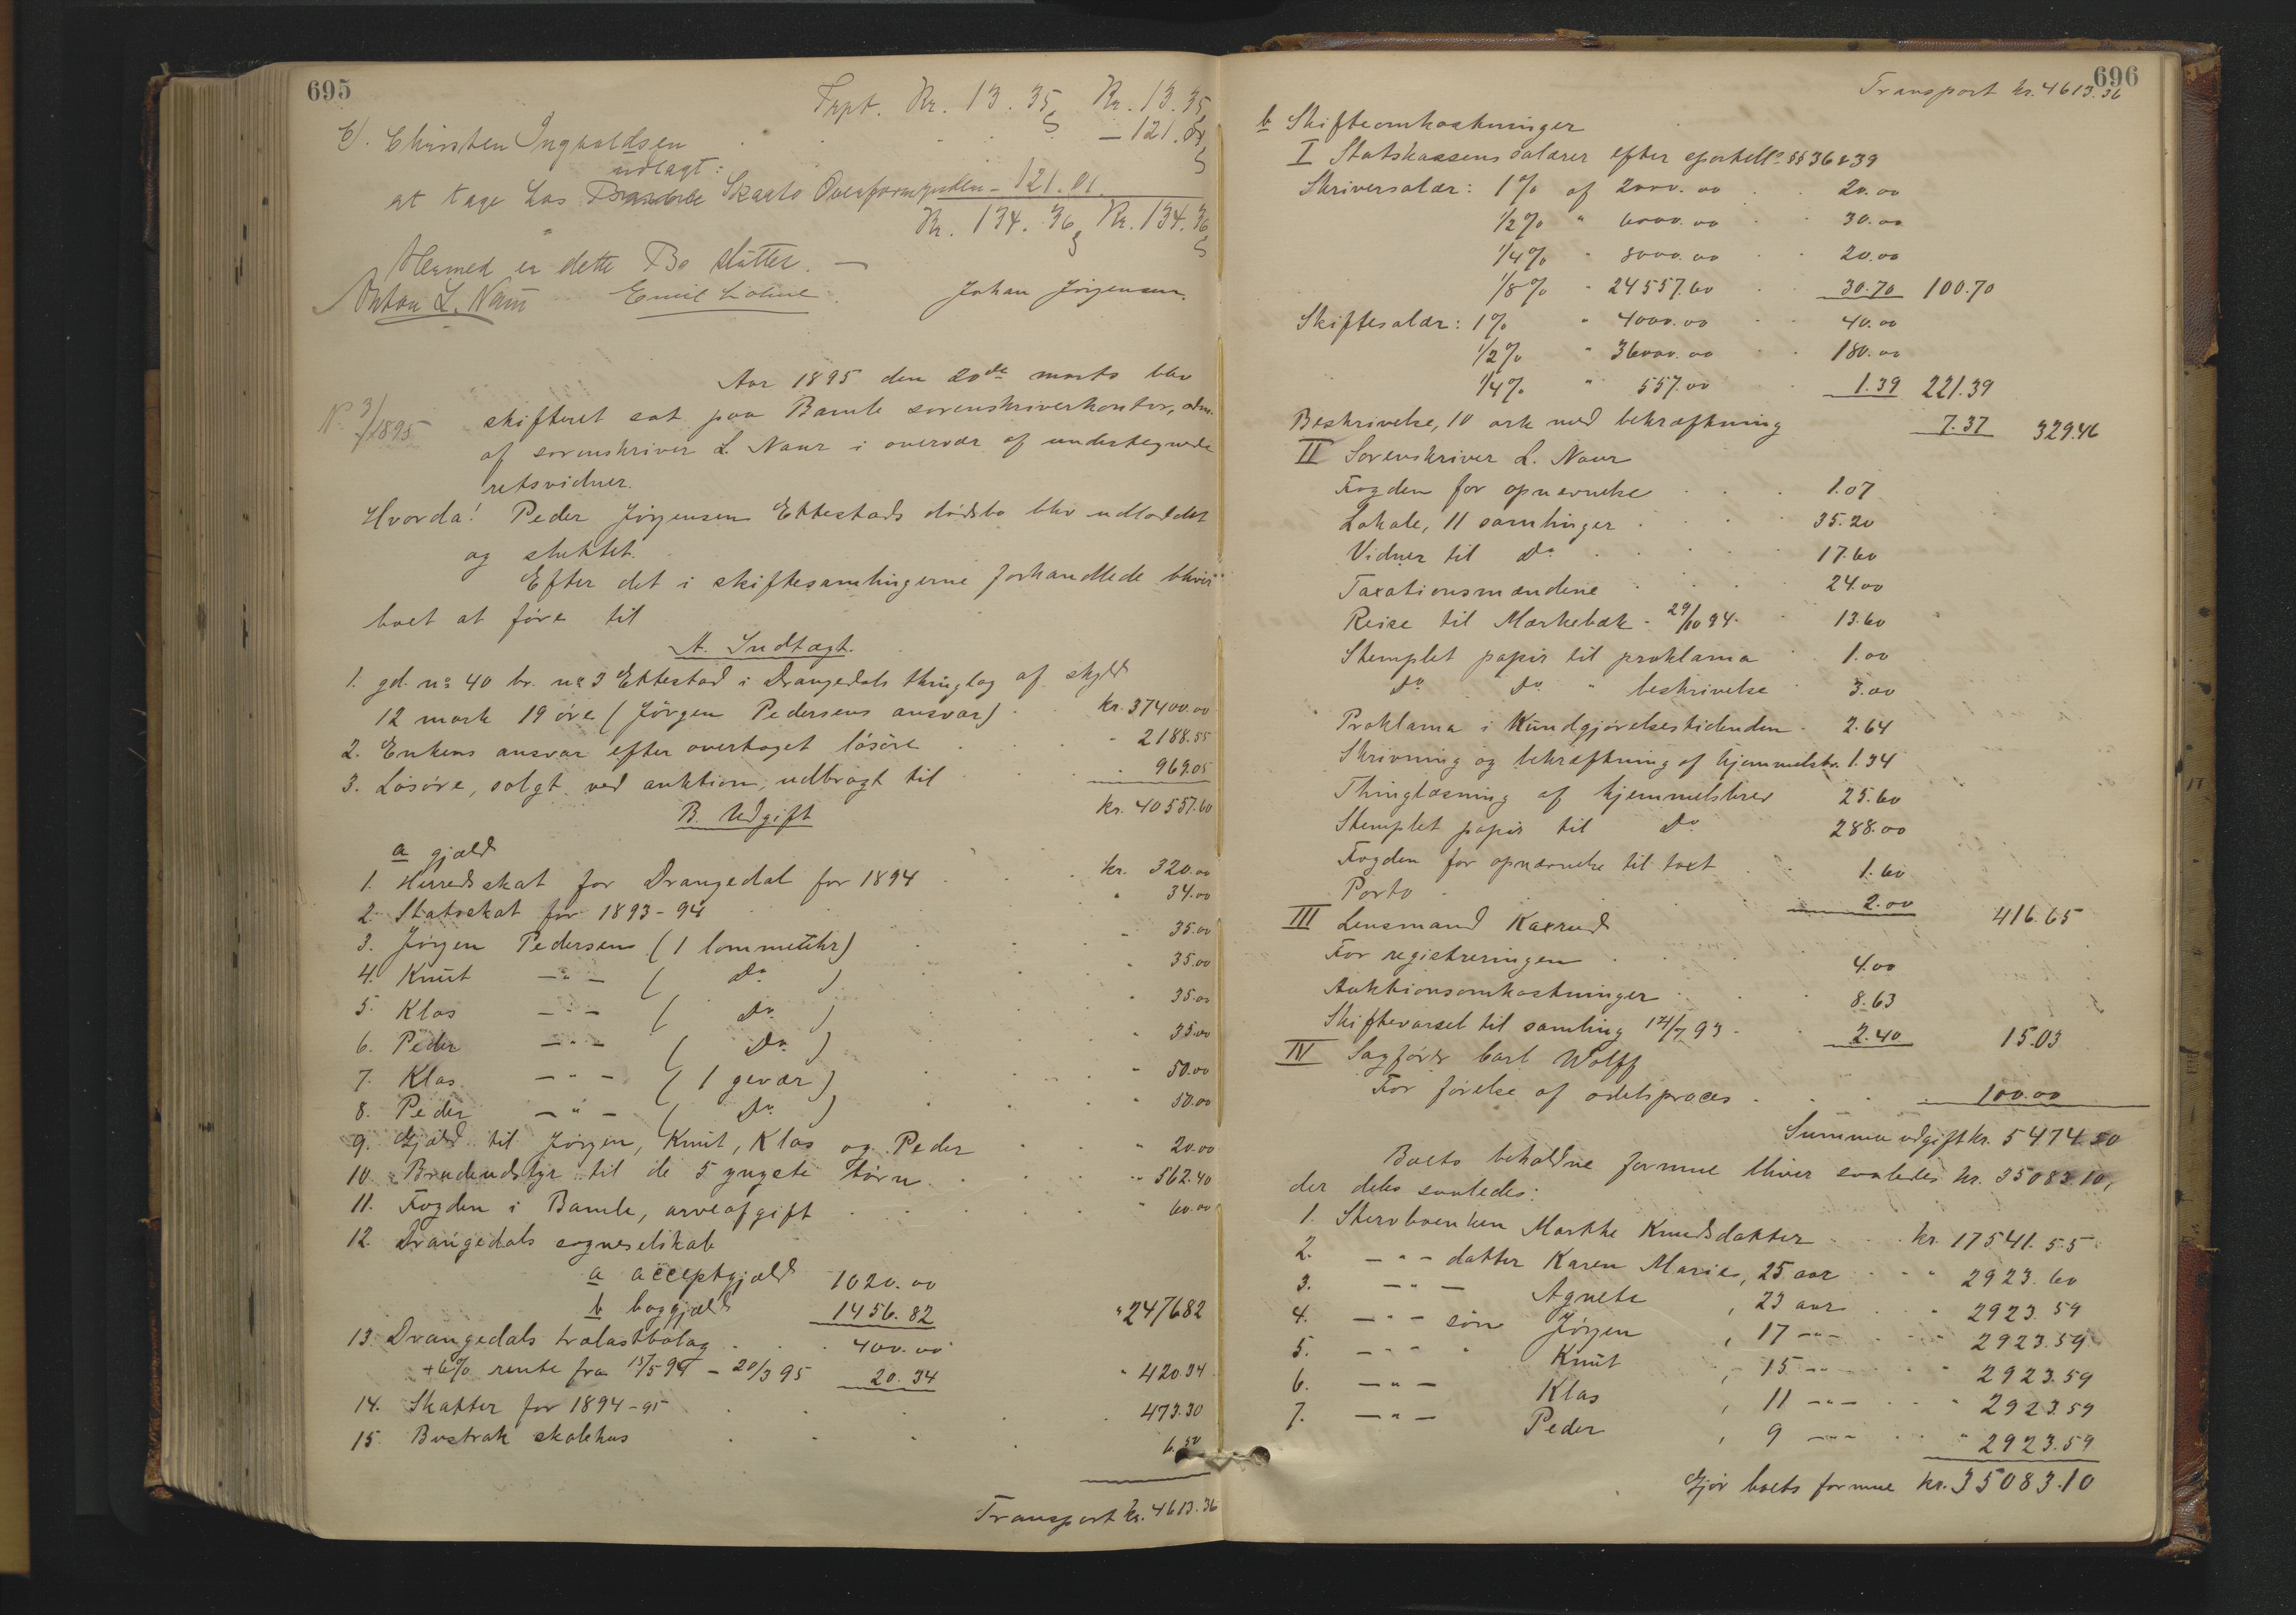 695
Trpt. Kr. 13.35, Kr. 13.35
6). Christen Ingvaldsen - 121.01
udlagt:
at tage hos Skaato Overformynderi - 121.01.
Kr. 134.36, Kr. 134.36
Hermed er dette Bo sluttet. —
Anton L. Naur Emil Johan Jörgensen.
Aar 1895 den 20de marts blev
No 3/1895
skifteret sat paa Bamle sorenskriverkontor, adm.
af sorenskriver L. Naur i overvær af undertegnede
retsvidner.
Hvorda! Peder Jörgensen Ettestads dødsbo blev udloddet
og sluttet.
Efter det i skiftesamlingerne forhandlede bliver
boet at före til
A. Indtægt.
1. gd. no 40 br. no 3 Ettestad i Drangedals thinglag af skyld
12 mark 19 öre (Jörgen Pedersens ansvar) kr. 37400.00
2. Enkens ansvar efter overtaget lösöre " 2188.55
3. Lösöre, solgt ved auktion, udbragt til " 969.05
kr. 40557.60
B. Udgift
a gjæld
1. Herredsskat for Drangedal for 1894 kr. 320.00
2. Statsskat for 1893-94 " 34.00
3. Jörgen Pedersen (1 lommeuhr) " 35.00
4. Knut —"— ( Do ) " 35.00
5. Klas —"— ( Do ) " 35.00
6. Peder —"— ( Do ) " 35.00
7. Klas —"— (1 gevær) " 50.00
8. Peder —"— ( Do ) " 50.00
9. Gjæld til Jörgen, Knut, Klas og Peder " 20.00
10. Brudeudstyr til de 5 yngste börn " 562.40
11. Fogden i Bamle, arveafgift " 60.00
12. Drangedals sogneselskab
a acceptgjæld 1020.00
b boggjæld 1456.82 " 2476.82
13. Drangedals trælastbolag 400.00
+ 6% rente fra 15/5 94 - 20/3 95 20.34 " 420.34
14. Skatter for 1894-95 " 473.30
15. Bostrak skolehus 6.50
Transport kr. 4613.36
696
Transport kr. 4613.36
b Skifteomkostninger
I Statskassens salærer efter sportell. §§ 36 & 39
Skriversalær: 1% af 2000.00 20.00
1/2% " 6000.00 30.00
1/4% " 8000.00 20.00
1/8% " 24557.60 30.70 100.70
Skiftesalær: 1% " 4000.00 40.00
1/2% " 36000.00 180.00
1/4% " 557.00 1.39 221.39
Beskrivelse, 10 ark med bekræftning 7.37 329.46
II Sorenskriver L. Naur
Fogden for opnævnelse 1.07
Lokale, 11 samlinger 35.20
Vidner til Do 17.60
Taxationsmændene 24.00
Reise til Mærkebæk 29/10 94 13.60
Stemplet papir til proklama 1.00
Do Do " beskrivelse 3.00
Proklama i Kundgjörelsestidenden 2.64
Skrivning og bekræftning af hjemmelsbr. 1.34
Thinglæsning af hjemmelsbrev 25.60
Stemplet papir til Do 288.00
Fogden for opnævnelse til taxt 1.60
Porto 2.00 416.65
III Lensmand Kaxrud
For registreringen 4.00
Auktionsomkostninger 8.63
Skiftevarsel til samling 14/7 93 2.40 15.03
IV Sagförer Carl Wolff
For förelse af odelsproces 100.00
Summa udgift kr. 5474.50
Boets beholdne formue bliver saaledes kr. 35083.10,
der deles saaledes:
1. Stervboenken Marthe Knudsdatter kr. 17541.55
2. —"— datter Karen Marie, 25 aar " 2923.60
3. —"— Agnete , 23 aar " 2923.59
4. —"— sön Jörgen , 17 —"— " 2923.59
5. —"— " Knut , 15 —"— " 2923.59
6. —"— Klas , 11 —"— " 2923.59
7. —"— Peder , 9 —"— " 2923.59
Gjör boets formue kr. 35083.10